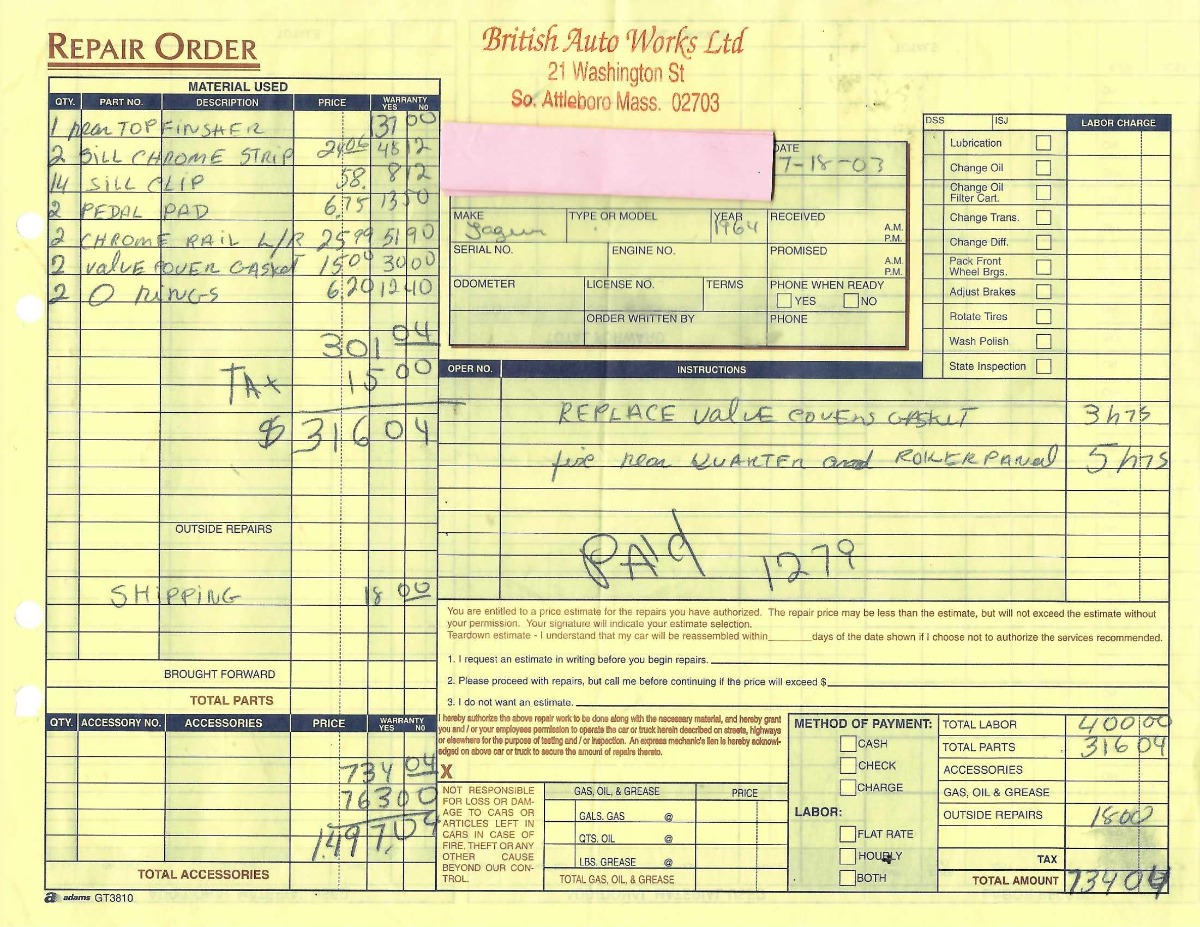 REPAIR ORDER
British Auto Works Ltd
21 Washington St
So. Attleboro Mass. 02703
MATERIAL USED
QTY. PART NO. DESCRIPTION PRICE WARRANTY YES NO
1 rear TOP FINSHER 137 00
2 SILL CHROME STRIP 24.06 48 12
14 SILL CLIP 58. 8 12
2 PEDAL PAD 6.75 13 50
2 CHROME RAIL L/R 25 99 51 90
2 valve COVER GASKET 15 00 30 00
2 O rings 6.20 12 40
301 04
TAX 15 00
$ 316 04
OUTSIDE REPAIRS
SHIPPING 18 00
BROUGHT FORWARD
TOTAL PARTS
QTY. ACCESSORY NO. ACCESSORIES PRICE WARRANTY YES NO
734 04
763 00
1,497.04
TOTAL ACCESSORIES
adams GT3810
DATE
7-18-03
MAKE TYPE OR MODEL YEAR RECEIVED
Jaguar 1964 A.M.
P.M.
SERIAL NO. ENGINE NO. PROMISED
A.M.
P.M.
ODOMETER LICENSE NO. TERMS PHONE WHEN READY
YES NO
ORDER WRITTEN BY PHONE
DSS ISJ LABOR CHARGE
Lubrication
Change Oil
Change Oil
Filter Cart.
Change Trans.
Change Diff.
Pack Front
Wheel Brgs.
Adjust Brakes
Rotate Tires
Wash Polish
State Inspection
OPER NO. INSTRUCTIONS
REPLACE valve covers GASKET 3 hrs
fix rear QUARTER and ROKER PANAL 5 hrs
PAId 1279
You are entitled to a price estimate for the repairs you have authorized. The repair price may be less than the estimate, but will not exceed the estimate without
your permission. Your signature will indicate your estimate selection.
Teardown estimate - I understand that my car will be reassembled within_______days of the date shown if I choose not to authorize the services recommended.
1. I request an estimate in writing before you begin repairs.
2. Please proceed with repairs, but call me before continuing if the price will exceed $
3. I do not want an estimate.
I hereby authorize the above repair work to be done along with the necessary material, and hereby grant
you and / or your employees permission to operate the car or truck herein described on streets, highways
or elsewhere for the purpose of testing and / or inspection. An express mechanic's lien is hereby acknowl-
edged on above car or truck to secure the amount of repairs thereto.
X
NOT RESPONSIBLE
FOR LOSS OR DAM-
AGE TO CARS OR
ARTICLES LEFT IN
CARS IN CASE OF
FIRE, THEFT OR ANY
OTHER CAUSE
BEYOND OUR CON-
TROL.
GAS, OIL, & GREASE PRICE
GALS. GAS @
QTS. OIL @
LBS. GREASE @
TOTAL GAS, OIL, & GREASE
METHOD OF PAYMENT:
CASH
CHECK
CHARGE
LABOR:
FLAT RATE
HOURLY
BOTH
TOTAL LABOR 400 00
TOTAL PARTS 316 04
ACCESSORIES
GAS, OIL & GREASE
OUTSIDE REPAIRS 18 00
TAX
TOTAL AMOUNT 734 04